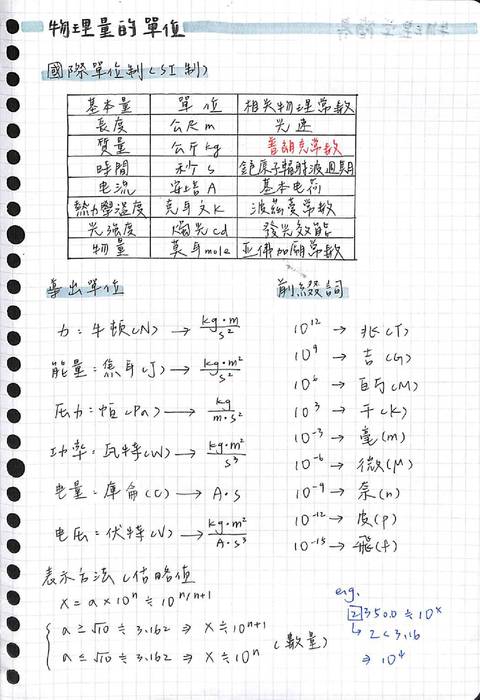 物理量的單位
國際單位制(SI制)
基本量 單位 相關物理常數
長度 公尺 m 光速
質量 公斤 kg 普朗克常數
時間 秒 s 銫原子輻射波週期
电流 安培 A 基本电荷
熱力學溫度 克耳文 K 波茲曼常數
光強度 燭光 cd 發光效能
物量 莫耳 mole 亞佛加厥常數
導出單位
力:牛頓(N) → kg·m/s²
能量:焦耳(J) → kg·m²/s²
压力:帕(Pa) → kg/m·s²
功率:瓦特(W) → kg·m²/s³
电量:庫侖(C) → A·s
电压:伏特(V) → kg·m²/A·s³
前綴詞
10¹² → 兆(T)
10⁹ → 吉(G)
10⁶ → 百万(M)
10³ → 千(K)
10⁻³ → 毫(m)
10⁻⁶ → 微(μ)
10⁻⁹ → 奈(n)
10⁻¹² → 皮(p)
10⁻¹⁵ → 飛(f)
表示方法(估略值
X = a × 10ⁿ ≒ 10ⁿ/ⁿ⁺¹
a ≥ √10 ≒ 3.162 ⇒ X ≒ 10ⁿ⁺¹
a ≤ √10 ≒ 3.162 ⇒ X ≒ 10ⁿ
(數量)
eg.
2350.0 ≒ 10ˣ
↳ 2 < 3.16
⇒ 10⁴